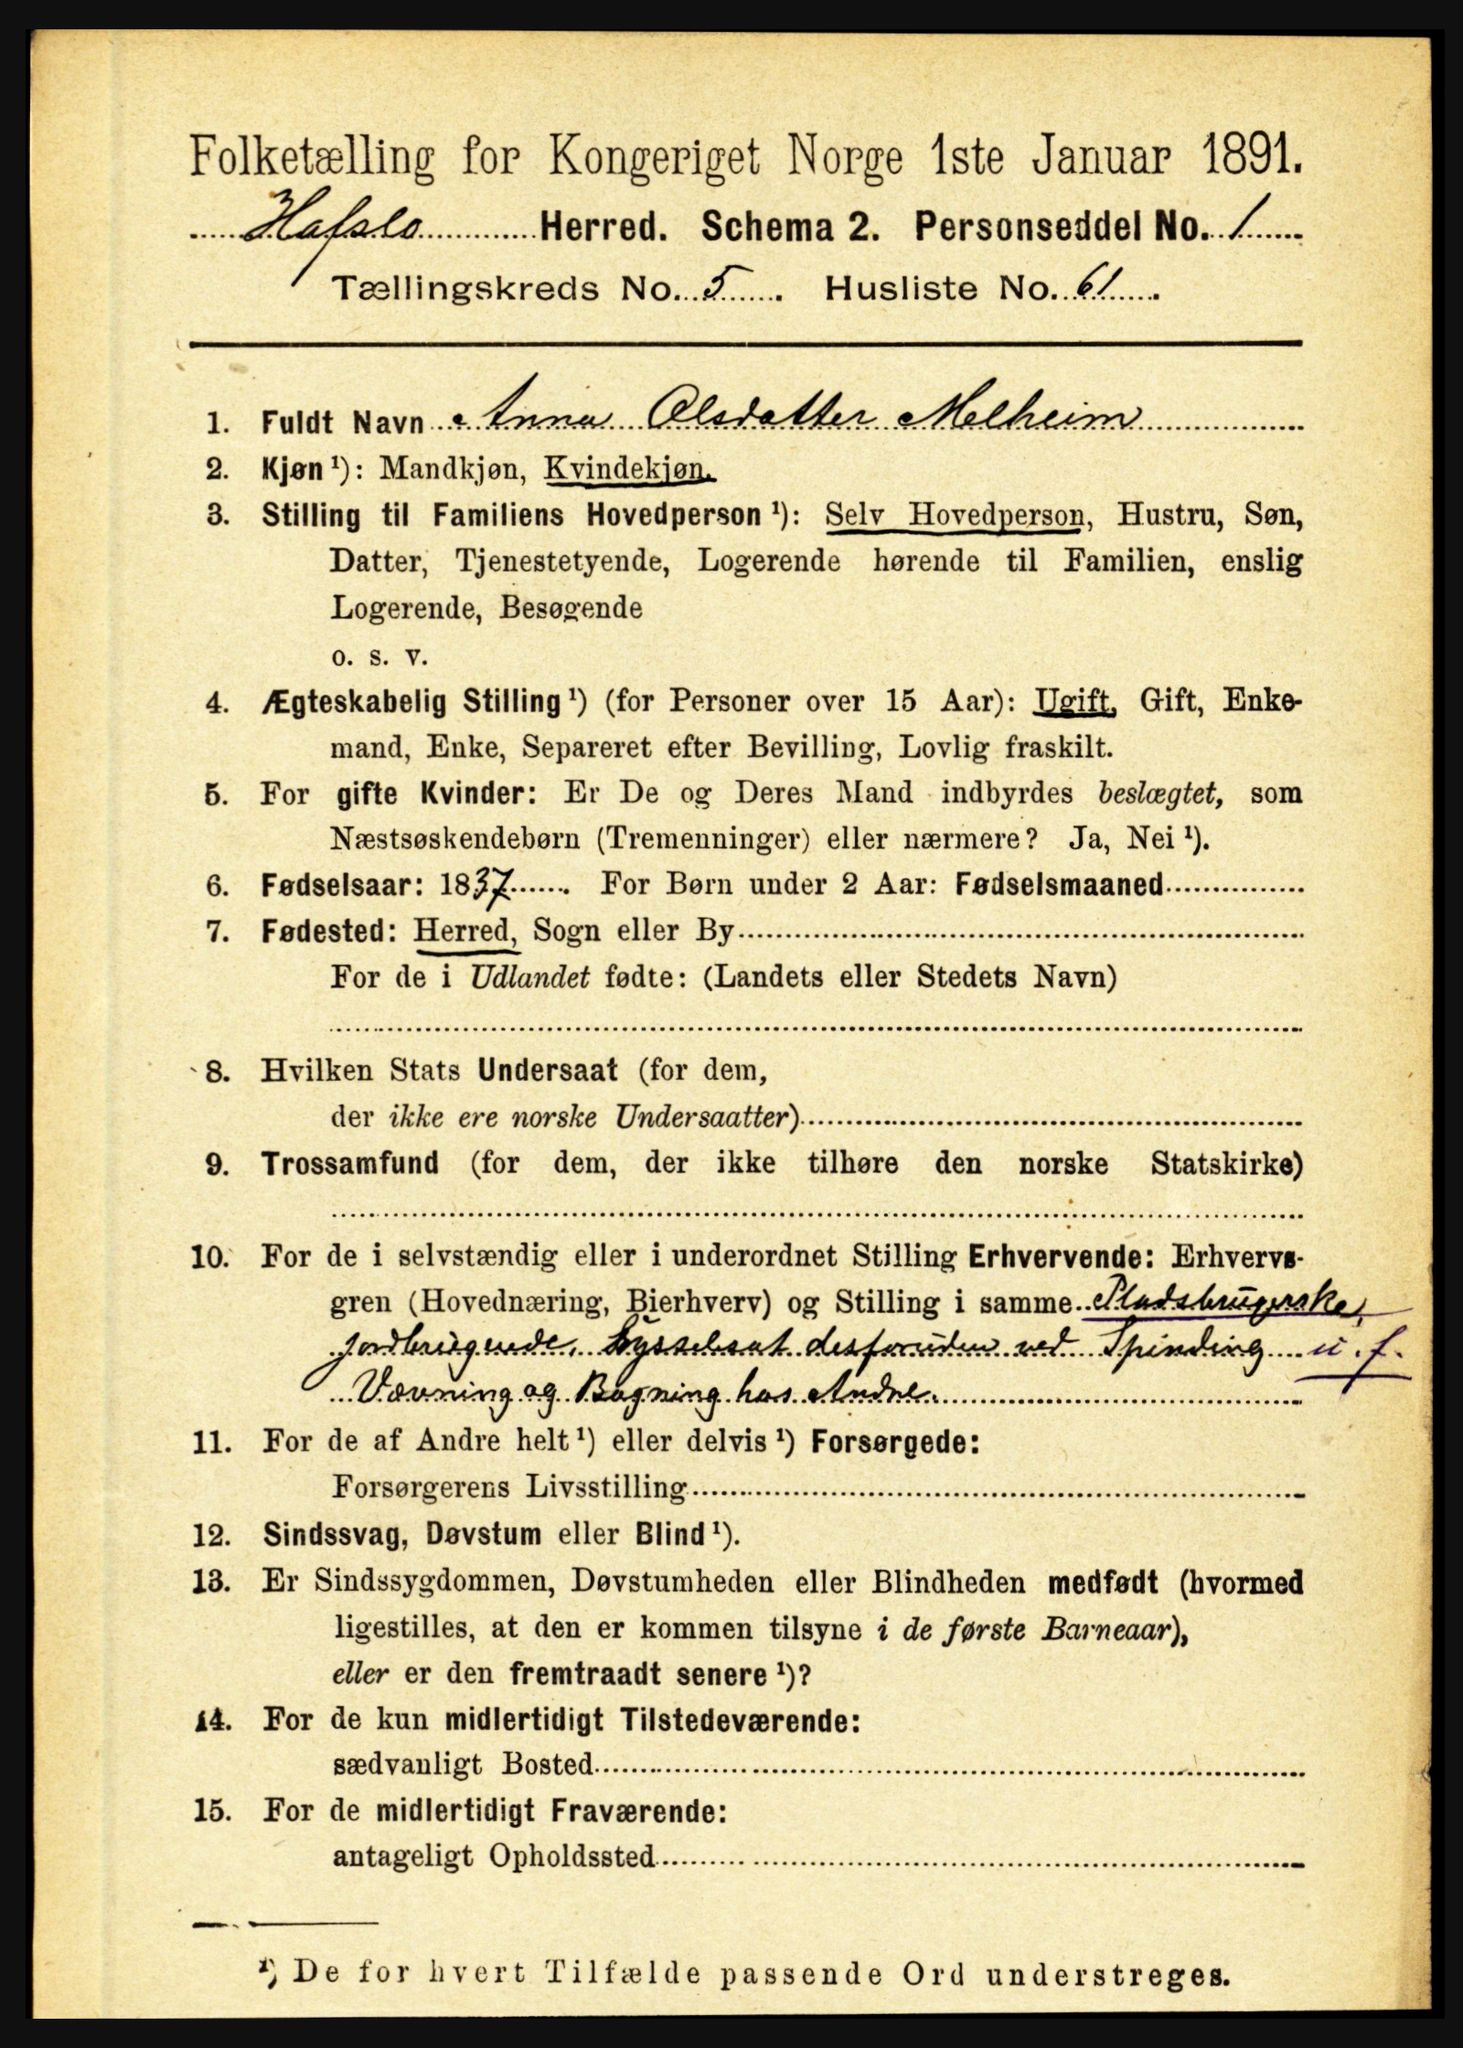 Folketælling for Kongeriget Norge 1ste Januar 1891.
Hafslo Herred. Schema 2. Personseddel No. 1
Tællingskreds No. 5. Husliste No. 61.
1. Fuldt Navn Anna Olsdatter Melheim
2. Kjøn ¹): Mandkjøn, Kvindekjøn.
3. Stilling til Familiens Hovedperson ¹): Selv Hovedperson, Hustru, Søn,
Datter, Tjenestetyende, Logerende hørende til Familien, enslig
Logerende, Besøgende
o. s. v.
4. Ægteskabelig Stilling ¹) (for Personer over 15 Aar): Ugift, Gift, Enke-
mand, Enke, Separeret efter Bevilling, Lovlig fraskilt.
5. For gifte Kvinder: Er De og Deres Mand indbyrdes beslægtet, som
Næstsøskendebørn (Tremenninger) eller nærmere? Ja, Nei ¹).
6. Fødselsaar: 1837. For Børn under 2 Aar: Fødselsmaaned
7. Fødested: Herred, Sogn eller By
For de i Udlandet fødte: (Landets eller Stedets Navn)
8. Hvilken Stats Undersaat (for dem,
der ikke ere norske Undersaatter)
9. Trossamfund (for dem, der ikke tilhøre den norske Statskirke)
10. For de i selvstændig eller i underordnet Stilling Erhvervende: Erhvervs-
gren (Hovednæring, Bierhverv) og Stilling i samme Pladsbrugerske,
jordbrugende, Sysselsat desforuden ved Spinding u. f.
Vævning og Bagning hos Andre.
11. For de af Andre helt ¹) eller delvis ¹) Forsørgede:
Forsørgerens Livsstilling
12. Sindssvag, Døvstum eller Blind ¹).
13. Er Sindssygdommen, Døvstumheden eller Blindheden medfødt (hvormed
ligestilles, at den er kommen tilsyne i de første Barneaar),
eller er den fremtraadt senere ¹)?
14. For de kun midlertidigt Tilstedeværende:
sædvanligt Bosted
15. For de midlertidigt Fraværende:
antageligt Opholdssted
¹) De for hvert Tilfælde passende Ord understreges.